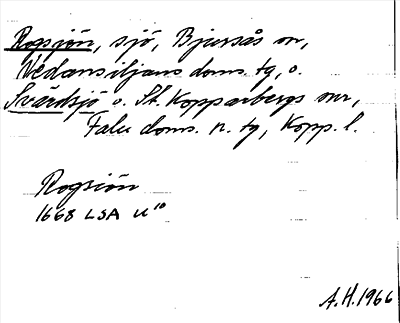 Rogsjön, sjö, Bjursås sn,
Nedansiljans doms. tg, o.
Svärdsjö o. St. Kopparbergs snr,
Falu doms. n. tg, Kopp. l.
Rogsiön
1668 LSA U¹⁰
A.H. 1966